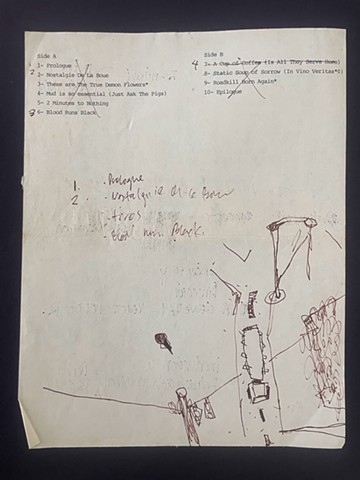 Side A
1- Prologue
2- Nostalgie De La Boue
3- These are The True Demon Flowers*
4- Mud is so essential (Just Ask The Pigs)
5- 2 Minutes to Nothing
6- Blood Runs Black
Side B
4 7- A Cup of Coffee (Is All They Serve Here)
8- Static Soup of Sorrow (In Vino Veritas*®)
9- Roadkill Born Again*
10- Epilogue
1. - Prologue
2 - Nostalgie de la Boue
- Blood runs Black